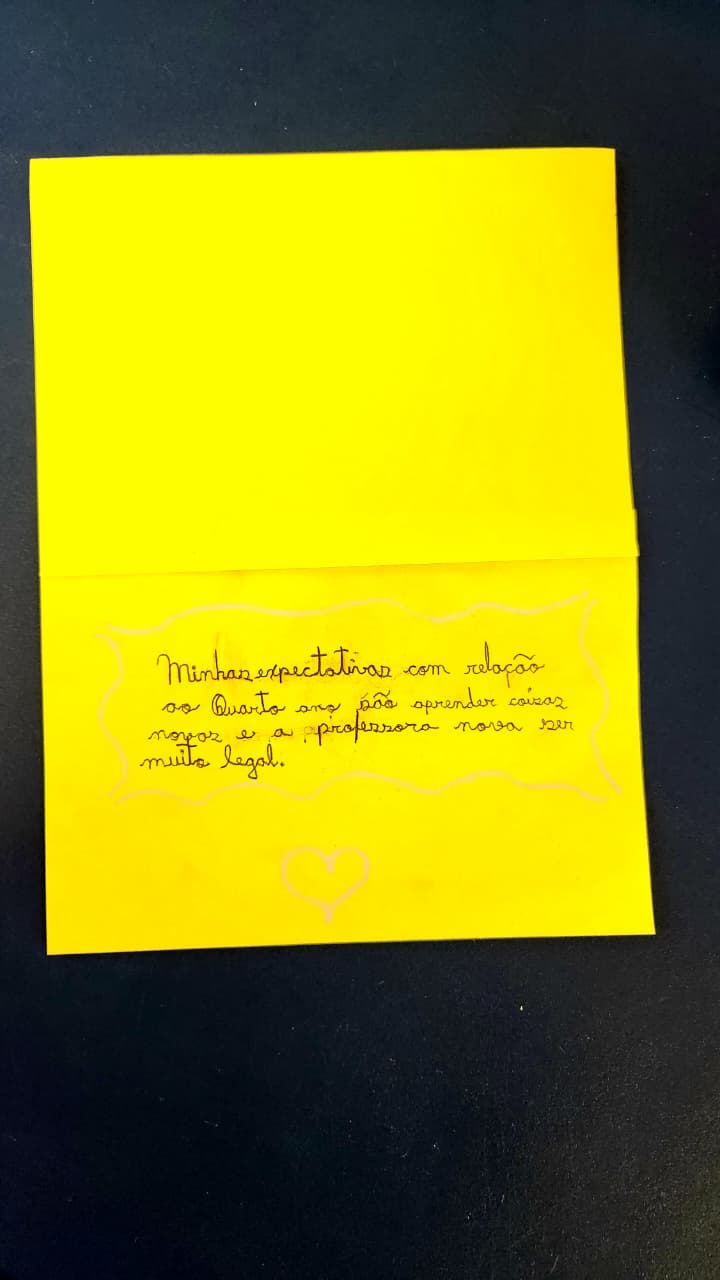 Minhas expectativas com relação
ao Quarto ano são aprender coisas
novas e a professora nova ser
muito legal.